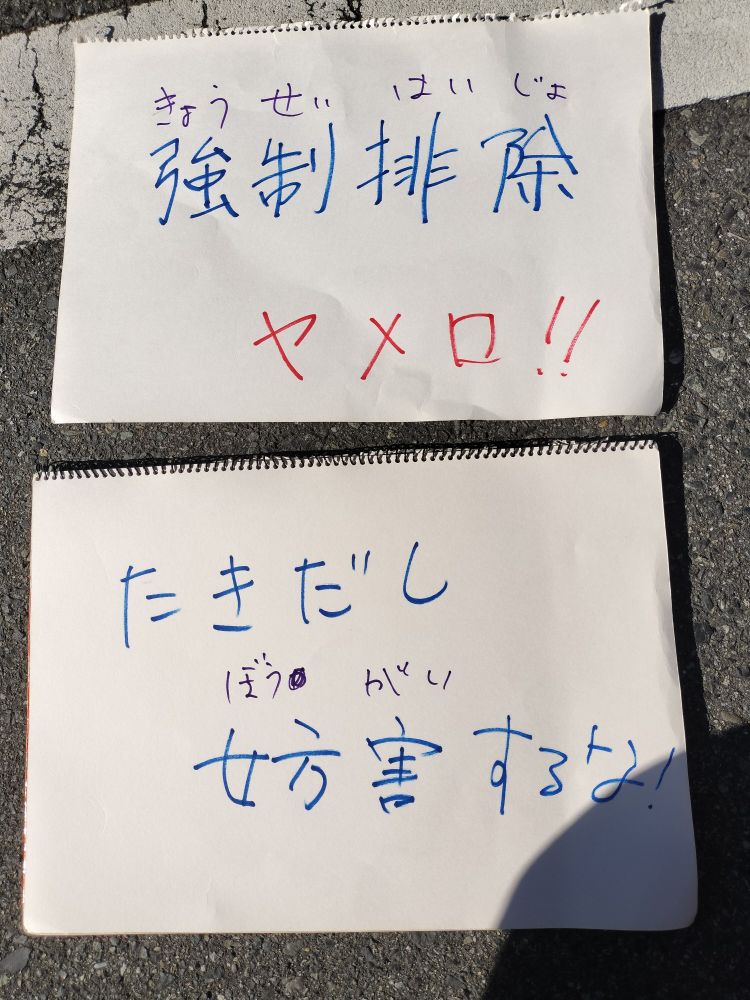 きょうせいはいじょ
強制排除
ヤメロ!!
たきだし
ぼうがい
妨害するな!